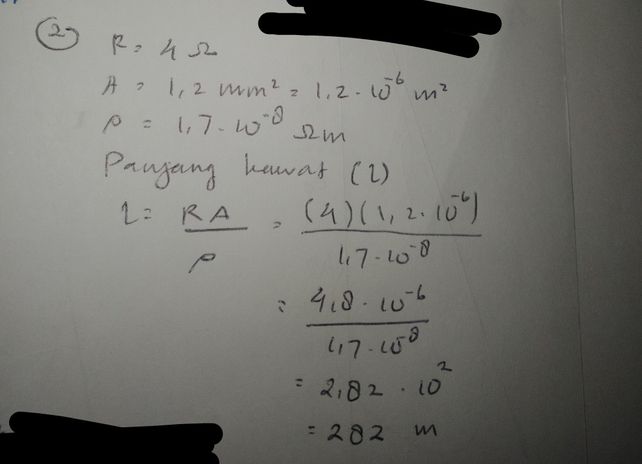 2. R = 4 Ω
A = 1,2 mm² = 1,2 . 10⁻⁶ m²
ρ = 1,7 . 10⁻⁸ Ωm
Panjang kawat (l)
l = RA / ρ = (4)(1,2 . 10⁻⁶) / 1,7 . 10⁻⁸
= 4,8 . 10⁻⁶ / 1,7 . 10⁻⁸
= 2,82 . 10²
= 282 m